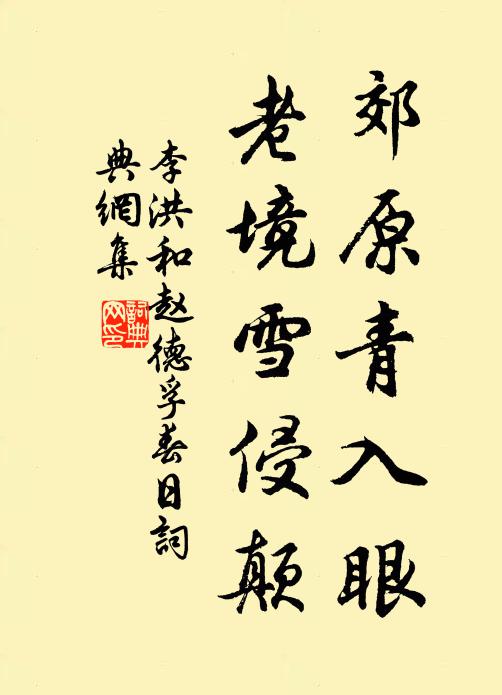 郊原青入眼
老境雪侵颠
李洪和赵德孚春日詞
典網集
詞典
网印